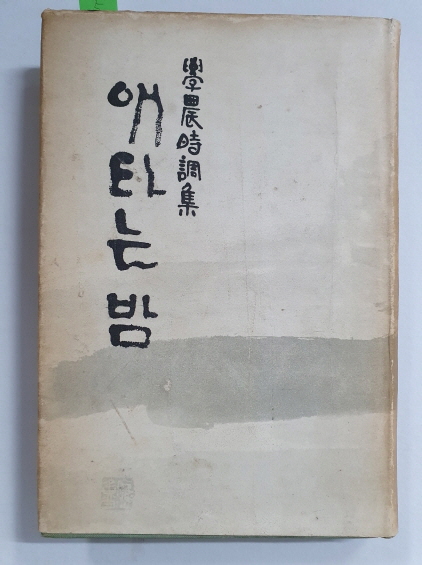 學農時調集
애타는 밤